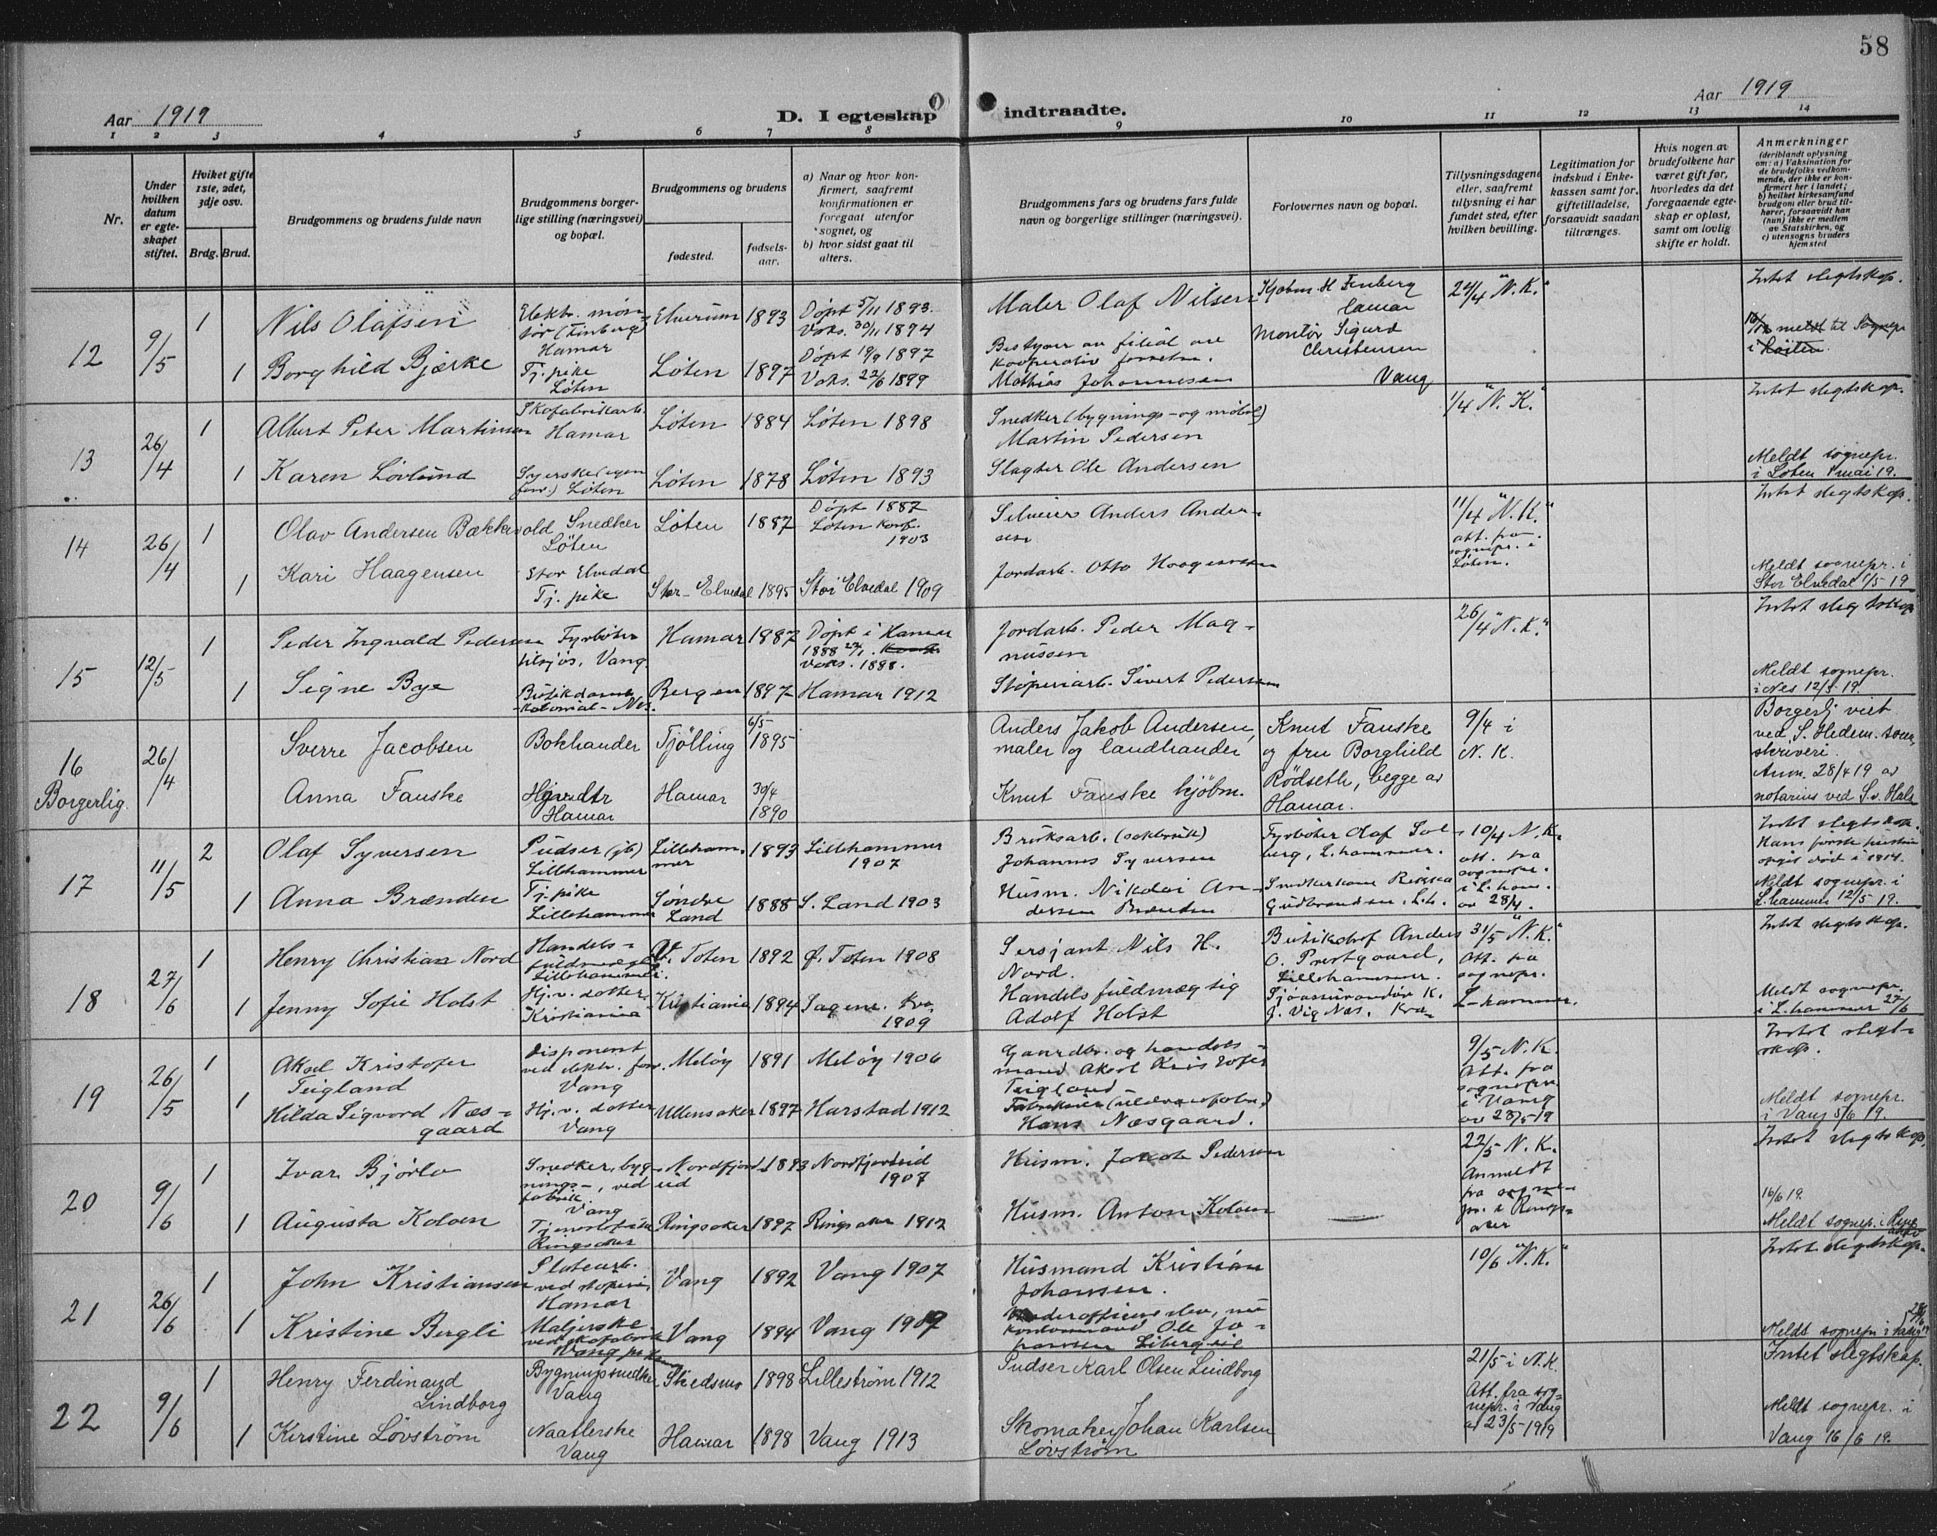 58
Aar 1919
D. I egteskap indtraadte.
Aar 1919
1 2 3 4 5 6 7 8 9 10 11 12 13 14
Nr.
Under hvilken datum er egteskapet stiftet.
Hviket gifte 1ste, 2det, 3dje osv.
Brdg. Brud.
Brudgommens og brudens fulde navn
Brudgommens borgerlige stilling (næringsvei) og bopæl.
Brudgommens og brudens
fødested.
fødselsaar.
a) Naar og hvor konfirmert, saafremt konfirmationen er foregaat utenfor sognet, og
b) hvor sidst gaat til alters.
Brudgommens fars og brudens fars fulde navn og borgerlige stillinger (næringsvei).
Forlovernes navn og bopæl.
Tillysningsdagene eller, saafremt tillysning ei har fundet sted, efter hvilken bevilling.
Legitimation for indskud i Enkekassen samt for giftetilladelse, forsaavidt saadan tiltrænges.
Hvis nogen av brudefolkene har været gift før, hvorledes da det foregaaende egteskap er opløst, samt om lovlig skifte er holdt.
Anmerkninger
(deriblandt oplysning om: a) Vaksination for de brudefolks vedkommende, der ikke er konfirmert her i landet; b) hvilket kirkesamfund brudgom eller brud tilhører, forsaavidt han (hun) ikke er medlem av Statskirken, og c) utensogns bruders hjemsted
12 9/5 1 Nils Olafsen
Elektr. montør (Finberg) Hamar
Elverum 1893 Døpt 5/11 1893. Vaks. 30/11 1894
Maler Olaf Nilsen
Kjøbm. H Finberg Hamar
24/4 "N.K."
Intet slegtskap.
1 Borghild Bjærke
Tj. pike Løten
Løten 1897 Døpt 19/9 1897 Vaks. 22/6 1899
Bestyrer av filial
Mathias Johannesen
Montør Sigurd Christensen Vang
meldt til Sognepr
13 26/4 1 Albert Peter Martinsen
Skofabrikarb. Hamar
Løten 1884 Løten 1898
Snedker (bygnings- og møbel)
Martin Pedersen
1/4 "N.K."
Intet slegtskap.
1 Karen Løvlund
Syerske (egen forr.) Løten
Løten 1878 Løten 1893
Slagter Ole Andersen
Meldt sognepr. i Løten 1 mai 19.
14 26/4 1 Olav Andersen Bækkevold
Snedker Løten
Løten 1887 Døpt 1887 Løten konf. 1903
Anders Andersen
11/4 "N.K." att. fra sognepr. i Løten.
Intet slegtskap.
1 Kari Haagensen
Stor Elvedal Tj. pike
Stor-Elvedal 1895 Stor Elvedal 1909
Jordarb. Otto Haagensen
Meldt sognepr. i Stor Elvedal 1/5 19
15 12/5 1 Peder Ingvald Pedersen
Fyrbøter Vang.
Hamar 1887 Døpt i Hamar 1888 Vaks. 1888.
Jordarb. Peder Magnussen
26/4 "N.K."
Intet slegtskap
1 Signe Bye
Butikdame kolonial - Nes.
Bergen 1897 Hamar 1912
Støperiarb. Sivert Pedersen
Meldt sognepr. i Nes 12/5 19.
16 Borgerlig. 26/4 Sverre Jacobsen
Bokhandler Tjølling 6/5 1895
Anders Jakob Andersen, maler og landhandler
Knut Fauske og fru Borghild Rödseth, begge av Hamar.
9/4 i N.K.
Borgerlj. viet ved S. Hedem. sorenskriveri. Anm. 28/4 19 av notarius ved
Anna Fauske
Hamar
Hamar 30/4 1890
Knut Fauske kjøbm.
17 11/5 2 Olaf Syversen
Pudser (jb) Lillehammer
Lillehammer 1893 Lillehammer 1907
Bruksarb.
Johannes Syversen
Fyrbøter Olaf Solberg, L.hammer.
10/4 N.K. att. fra sognepr. i L.ham. av 28/4.
Intet slegtskap. Hans første hustru døt i 1914.
1 Anna Brænden
Tj. pike Lillehammer
Søndre Land 1888 S. Land 1903
Husm. Nikolai Andersen Brænden
Gudbrandsen, L.h.
Meldt sognepr. i L.hammer 12/5 19.
18 27/6 1 Henry Christian Nord
Handelsfuldmægtig Lillehammer.
Toten 1892 Toten 1908
Sersjant Nils H. Nord.
Anders O. Prestgaard, Lillehammer.
31/5 "N.K." Att. fra sognepr. L-hammer.
Intet slegtskap.
1 Jenny Sofie Holst
Hj.v. datter Kristiania
Kristiania 1894 Sagene. Kra. 1909
Handelsfuldmægtig Adolf Holst
K. J. Vig Næs, Kra.
Meldt sognepr. i L.hammer 27/6
19 26/5 1 Aksel Kristofer Teigland
Disponent ved elektr. forr. Vang
Meløy 1891 Meløy 1906
Gaardbr. og handelsmand Aksel Kristofer Teigland
9/5 N.K. Att. fra sognepr. i Vang av 23/5-19
Intet slegtskap.
1 Hilda Sigvord Næsgaard
Hj.v. datter Vang
Ullensaker 1897 Harstad 1912
Hans Næsgaard.
Meldt sognepr. i Vang 5/6 19.
20 9/6 1 Ivar Bjørlo
Snedker, bygnings-, ved fabrik. Vang
Nordfjordeid 1893 Nordfjordeid 1907
Husm. Jakob Pedersen
22/5 N.K. Anmeldt fra sognepr. i Ringsaker
Intet slegtskap.
1 Augusta Koloen
Ringsaker
Ringsaker 1897 Ringsaker 1912
Husm. Anton Koloen
16/6 19. Meldt sognepr. i Ringsaker
21 26/6 1 John Kristiansen
Platearb. ved støperi, Hamar
Vang 1892 Vang 1907
Husmand Kristian Johansen.
10/6 "N.K."
Intet slegtskap.
1 Kristine Bergli
Vang 1894 Vang 1909
Ole Johansen
Meldt sognepr i Vang
22 9/6 1 Henry Ferdinand Lindborg
Bygningssnedker Vang
Skedsmo 1898 Lillestrøm 1912
Pudser Karl Olsen Lindborg
21/5 i N.K. Att. fra sognepr. i Vang av 23/5-1919
Intet slegtskap.
1 Kerstine Lövström
Naatlerske Vang
Hamar 1898 Vang 1913
Skomaker Johan Karlsen Lövström
Meldt sognepr. i Vang 16/6 19.